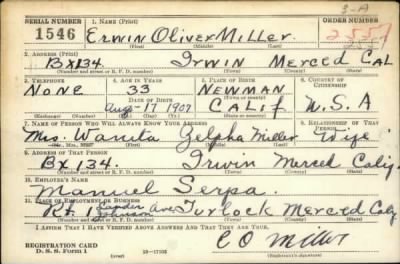 3-A
SERIAL NUMBER 1. NAME (Print) ORDER NUMBER
1546 Erwin Oliver Miller 2557
(First) (Middle) (Last)
2. ADDRESS (Print)
Bx 134. Irwin Merced Cal
(Number and street or R. F. D. number) (Town) (County) (State)
3. TELEPHONE 4. AGE IN YEARS 5. PLACE OF BIRTH 6. COUNTRY OF CITIZENSHIP
None 33 Newman
DATE OF BIRTH (Town or county)
Aug-17 1907 Calif U.S.A
(Exchange) (No.) (Mo.) (Day) (Yr.) (State or country)
7. NAME OF PERSON WHO WILL ALWAYS KNOW YOUR ADDRESS 8. RELATIONSHIP OF THAT PERSON
Mrs. Wanita Zelpha Miller Wife
(Mr., Mrs., Miss) (First) (Middle) (Last)
9. ADDRESS OF THAT PERSON
Bx 134. Irwin Merced Calif
(Number and street or R. F. D. number) (Town) (County) (State)
10. EMPLOYER'S NAME
Manuel Serpa.
11. PLACE OF EMPLOYMENT OR BUSINESS
Rt 1 Lander Johnson Ave Turlock Merced Calif
(Number and street or R. F. D. number) (Town) (County) (State)
I AFFIRM THAT I HAVE VERIFIED ABOVE ANSWERS AND THAT THEY ARE TRUE.
REGISTRATION CARD
D. S. S. Form 1 E O Miller
(Registrant's signature)